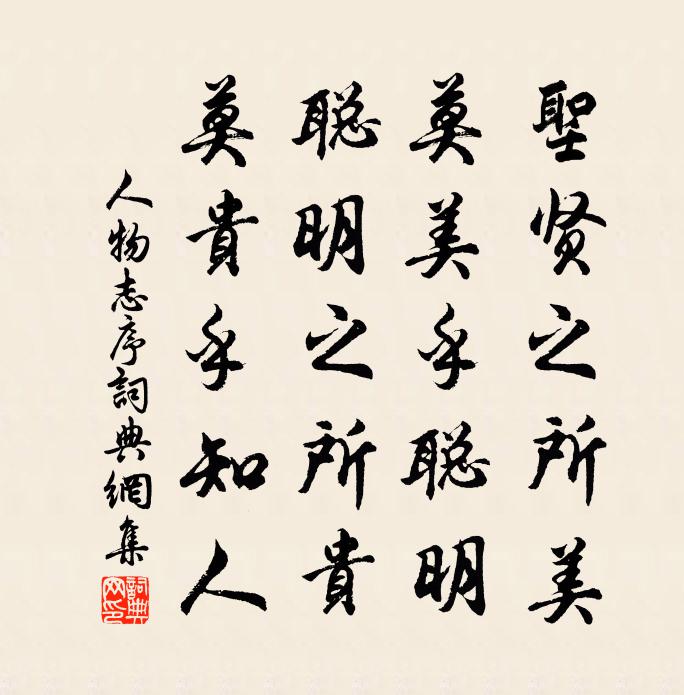 聖贤之所美
莫美乎聪明
聪明之所貴
莫貴乎知人
人物志序詞典網集
詞典网印